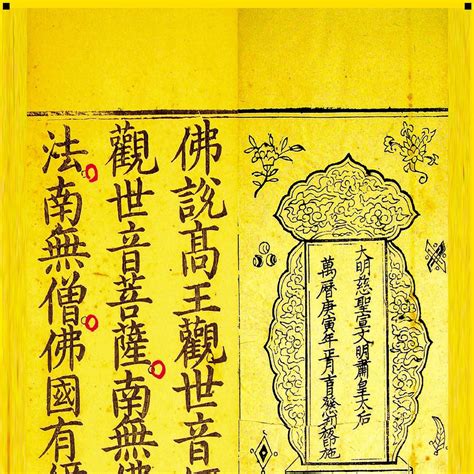 大明慈聖宣文明肅皇太后
萬曆庚寅年正月吉日發 印施
佛說髙王觀世音
觀世音菩薩南無佛
法南無僧佛國有